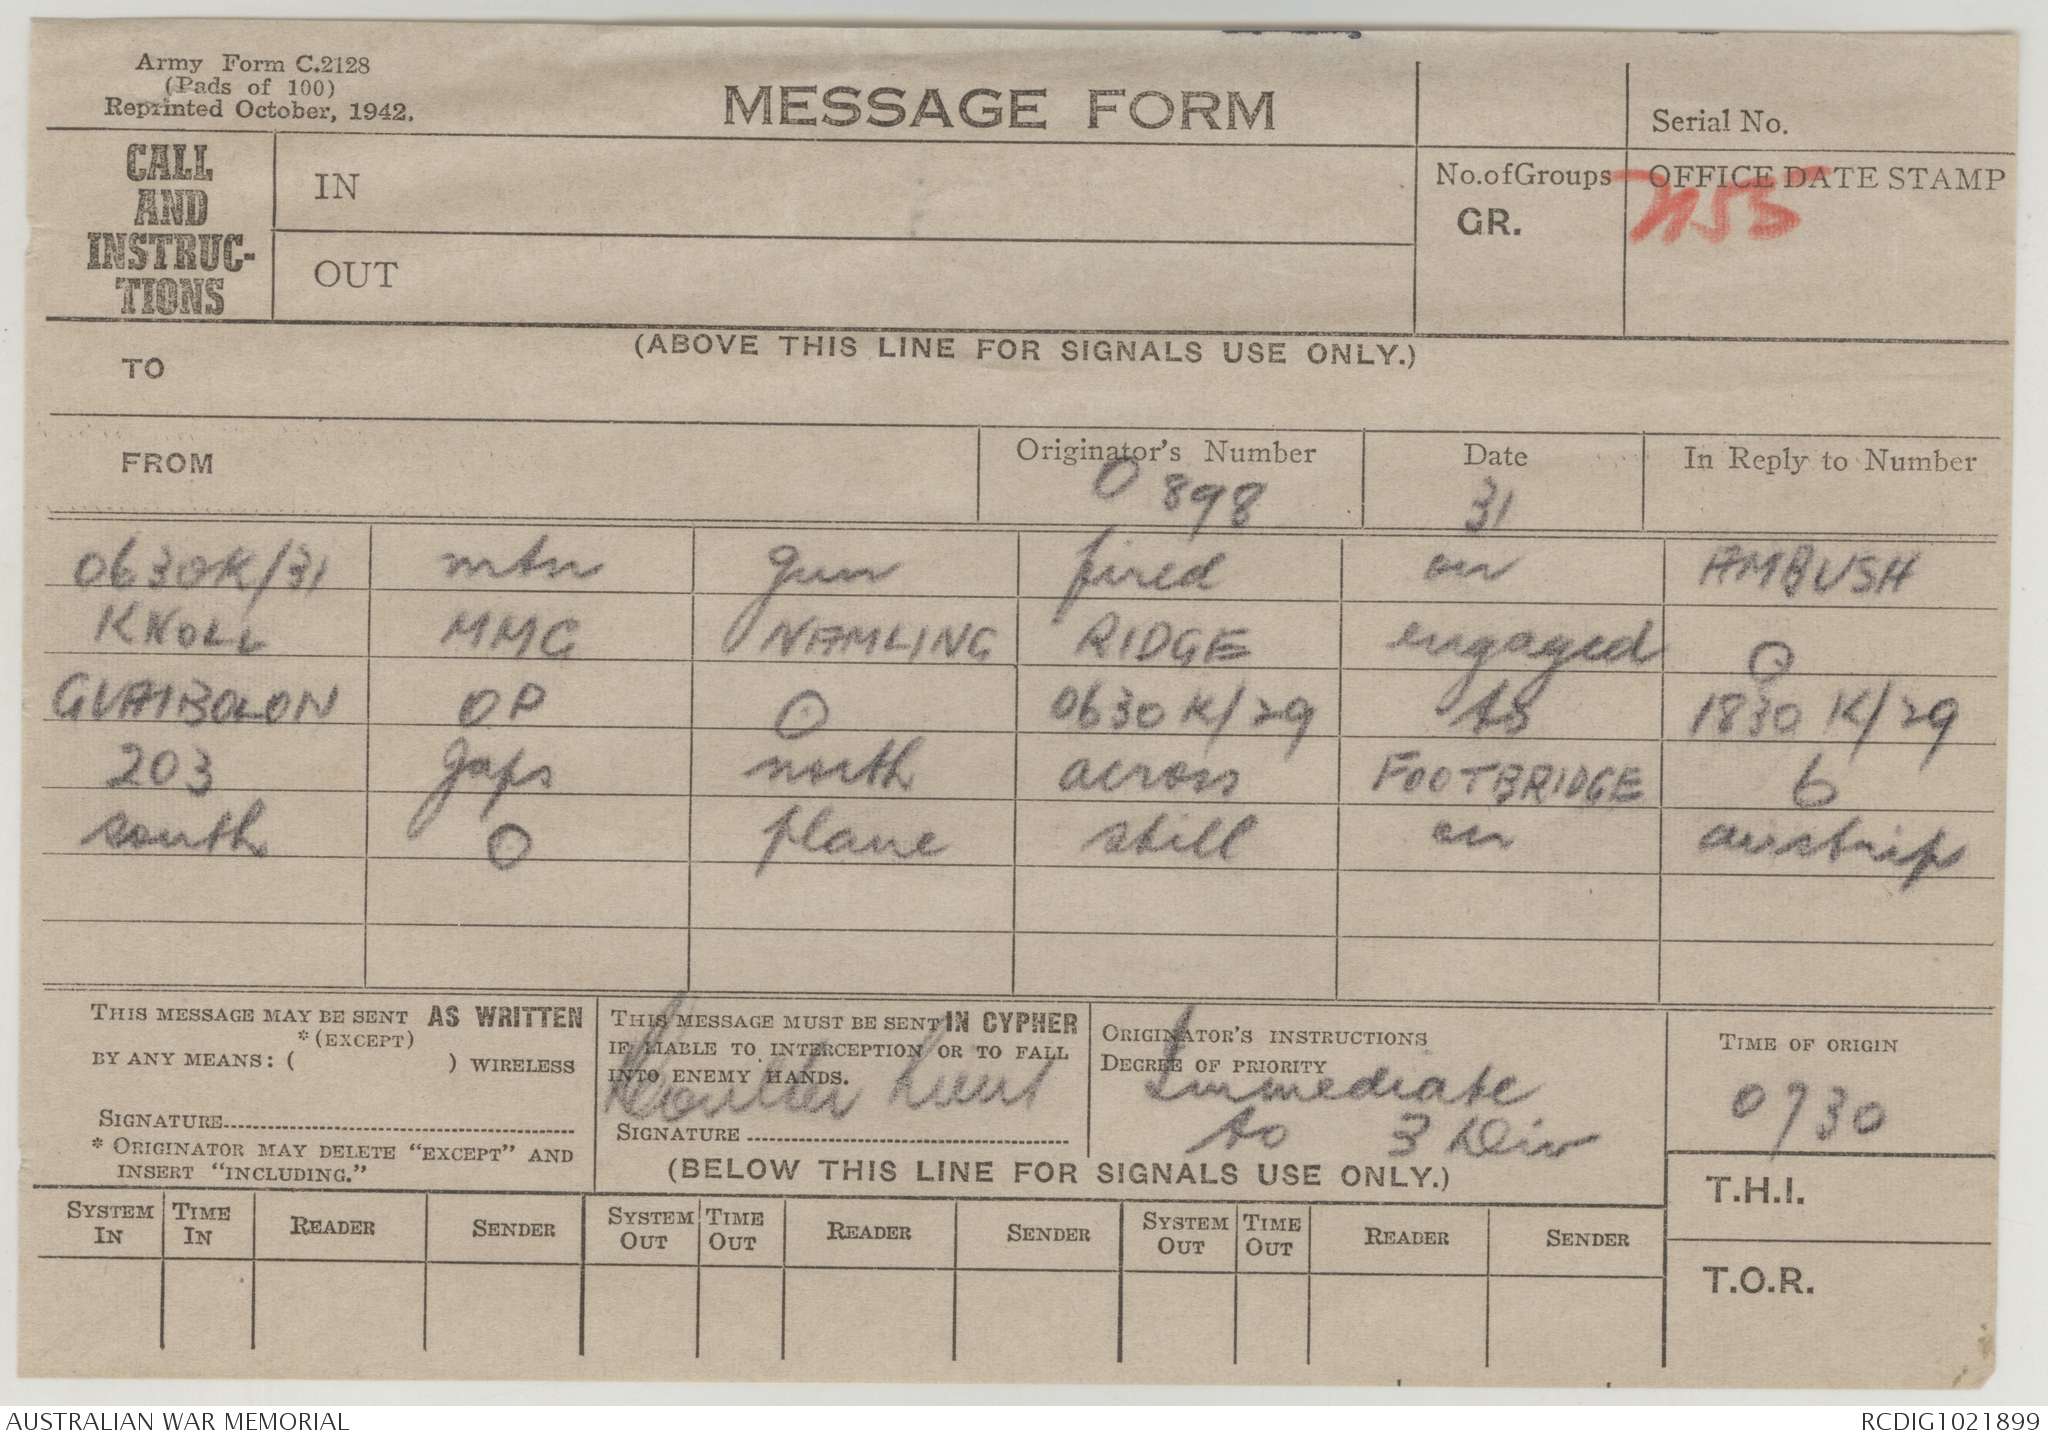 Army Form C.2128
(Pads of 100)
Reprinted October, 1942.
MESSAGE FORM
Serial No.
CALL
AND
INSTRUC-
TIONS
IN
OUT
No. of Groups
GR.
OFFICE DATE STAMP
(ABOVE THIS LINE FOR SIGNALS USE ONLY.)
TO
FROM
Originator's Number
O 898
Date
31
In Reply to Number
0630K/31 mtn gun fired on AMBUSH
KNOLL MMG NAMLING RIDGE engaged O
GUAIBOLON OP O 0630K/29 to 1830K/29
203 Japs north across FOOTBRIDGE 6
south O plane still on airstrip
THIS MESSAGE MAY BE SENT AS WRITTEN
*(EXCEPT)
BY ANY MEANS: ( ) WIRELESS
SIGNATURE
* ORIGINATOR MAY DELETE "EXCEPT" AND
INSERT "INCLUDING."
THIS MESSAGE MUST BE SENT IN CYPHER
IF LIABLE TO INTERCEPTION OR TO FALL
INTO ENEMY HANDS.
Lieut
SIGNATURE
ORIGINATOR'S INSTRUCTIONS
DEGREE OF PRIORITY
Immediate
to 3 Div
TIME OF ORIGIN
0730
(BELOW THIS LINE FOR SIGNALS USE ONLY.)
T.H.I.
T.O.R.
SYSTEM IN TIME IN READER SENDER SYSTEM OUT TIME OUT READER SENDER SYSTEM OUT TIME OUT READER SENDER
AUSTRALIAN WAR MEMORIAL
RCDIG1021899